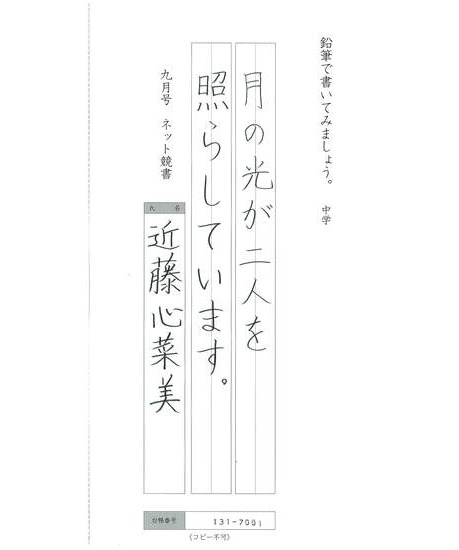 鉛筆で書いてみましょう。 中学
月の光が二人を
照らしています。
九月号 ネット競書
氏名
近藤心菜美
台帳番号 131-7001
(コピー不可)